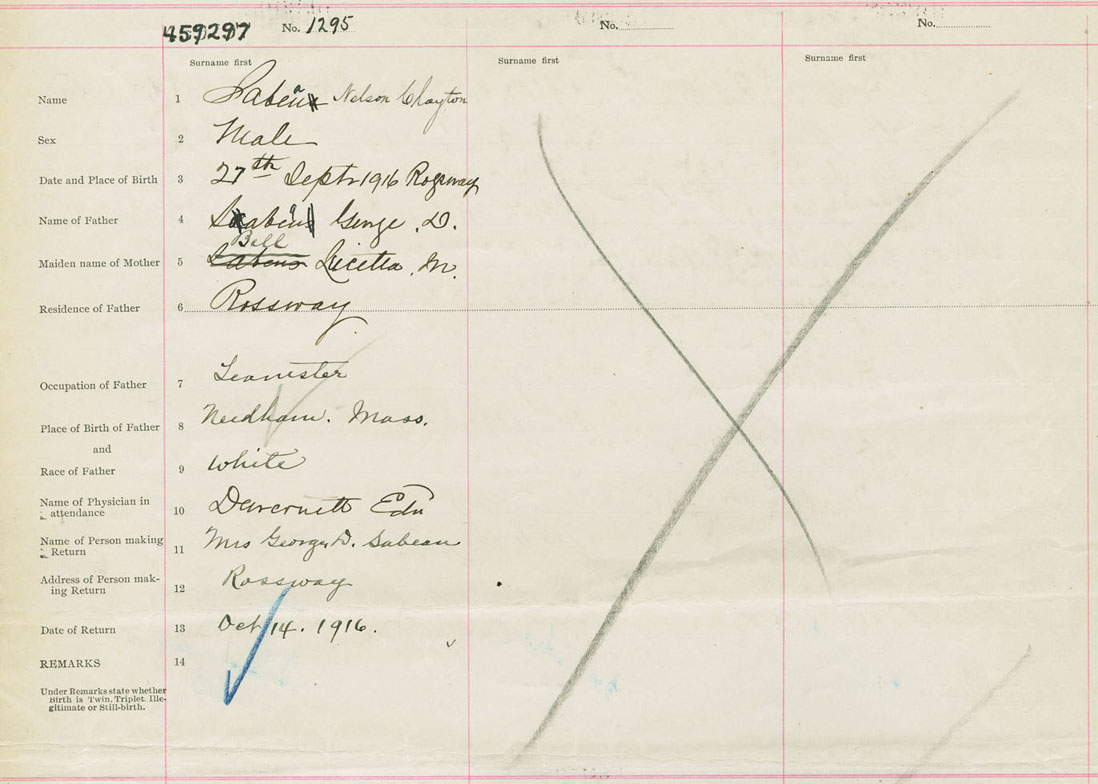 459297 No. 1295 No. No.
Surname first Surname first Surname first
Name 1 Sabean Nelson Clayton
Sex 2 Male
Date and Place of Birth 3 27th Septr 1916 Rossway
Name of Father 4 Sabean George. D.
Bell
Maiden name of Mother 5 Lucetta. M.
Residence of Father 6 Rossway
Occupation of Father 7 Teamster
Place of Birth of Father 8 Needham. Mass.
and
Race of Father 9 White
Name of Physician in
attendance 10 Edn
Name of Person making
Return 11 Mrs George D. Sabean
Address of Person mak-
ing Return 12 Rossway
Date of Return 13 Oct 14. 1916.
REMARKS 14
Under Remarks state whether
Birth is Twin, Triplet, Ille-
gitimate or Still-birth.